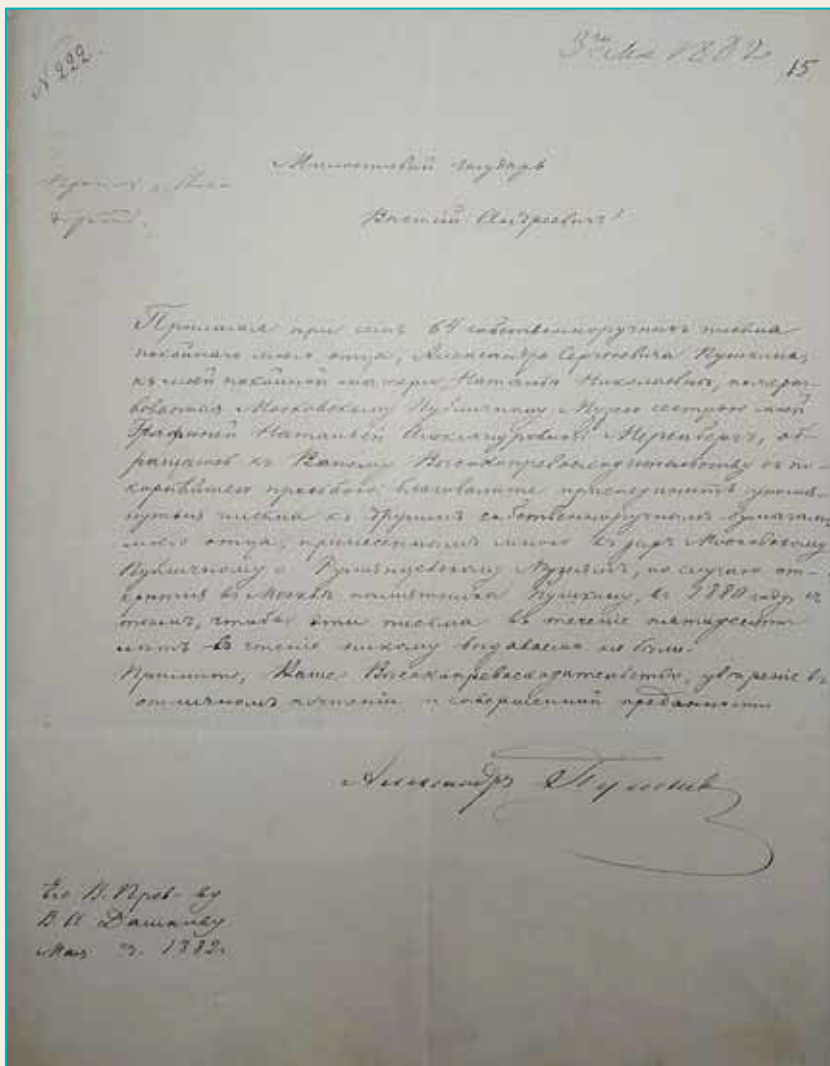 N 222.
3 Мая 1882
15
Милостивый Государь
Василий Андреевич!
Прилагая при семъ 64 собственноручныхъ письма
покойнаго моего отца, Александра Сергѣевича Пушкина,
къ моей покойной матери, Натальѣ Николаевнѣ, пожерт-
вованныя Московскому Публичному Музею сестрою моей
Графиней Натальей Александровной Меренбергъ, об-
ращаюсь къ Вашему Высокопревосходительству съ по-
корнѣйшею просьбою благоволите присоединить упомя-
нутыя письма къ другимъ собственноручнымъ бумагамъ
моего отца, принесеннымъ мною въ даръ Московскому
Публичному и Румянцевскому Музеямъ, по случаю от-
крытія въ Москвѣ памятника Пушкину, въ 1880 году, съ
тѣмъ, чтобы эти письма въ теченіе пятидесяти
лѣтъ въ чтеніе никому выдаваемы не были.
Примите, Ваше Высокопревосходительство, увѣреніе въ
отличномъ почтеніи и совершенной преданности
Александръ Пушкинъ
Его В. Прев-ву
В А Дашкову
Мая 3. 1882.